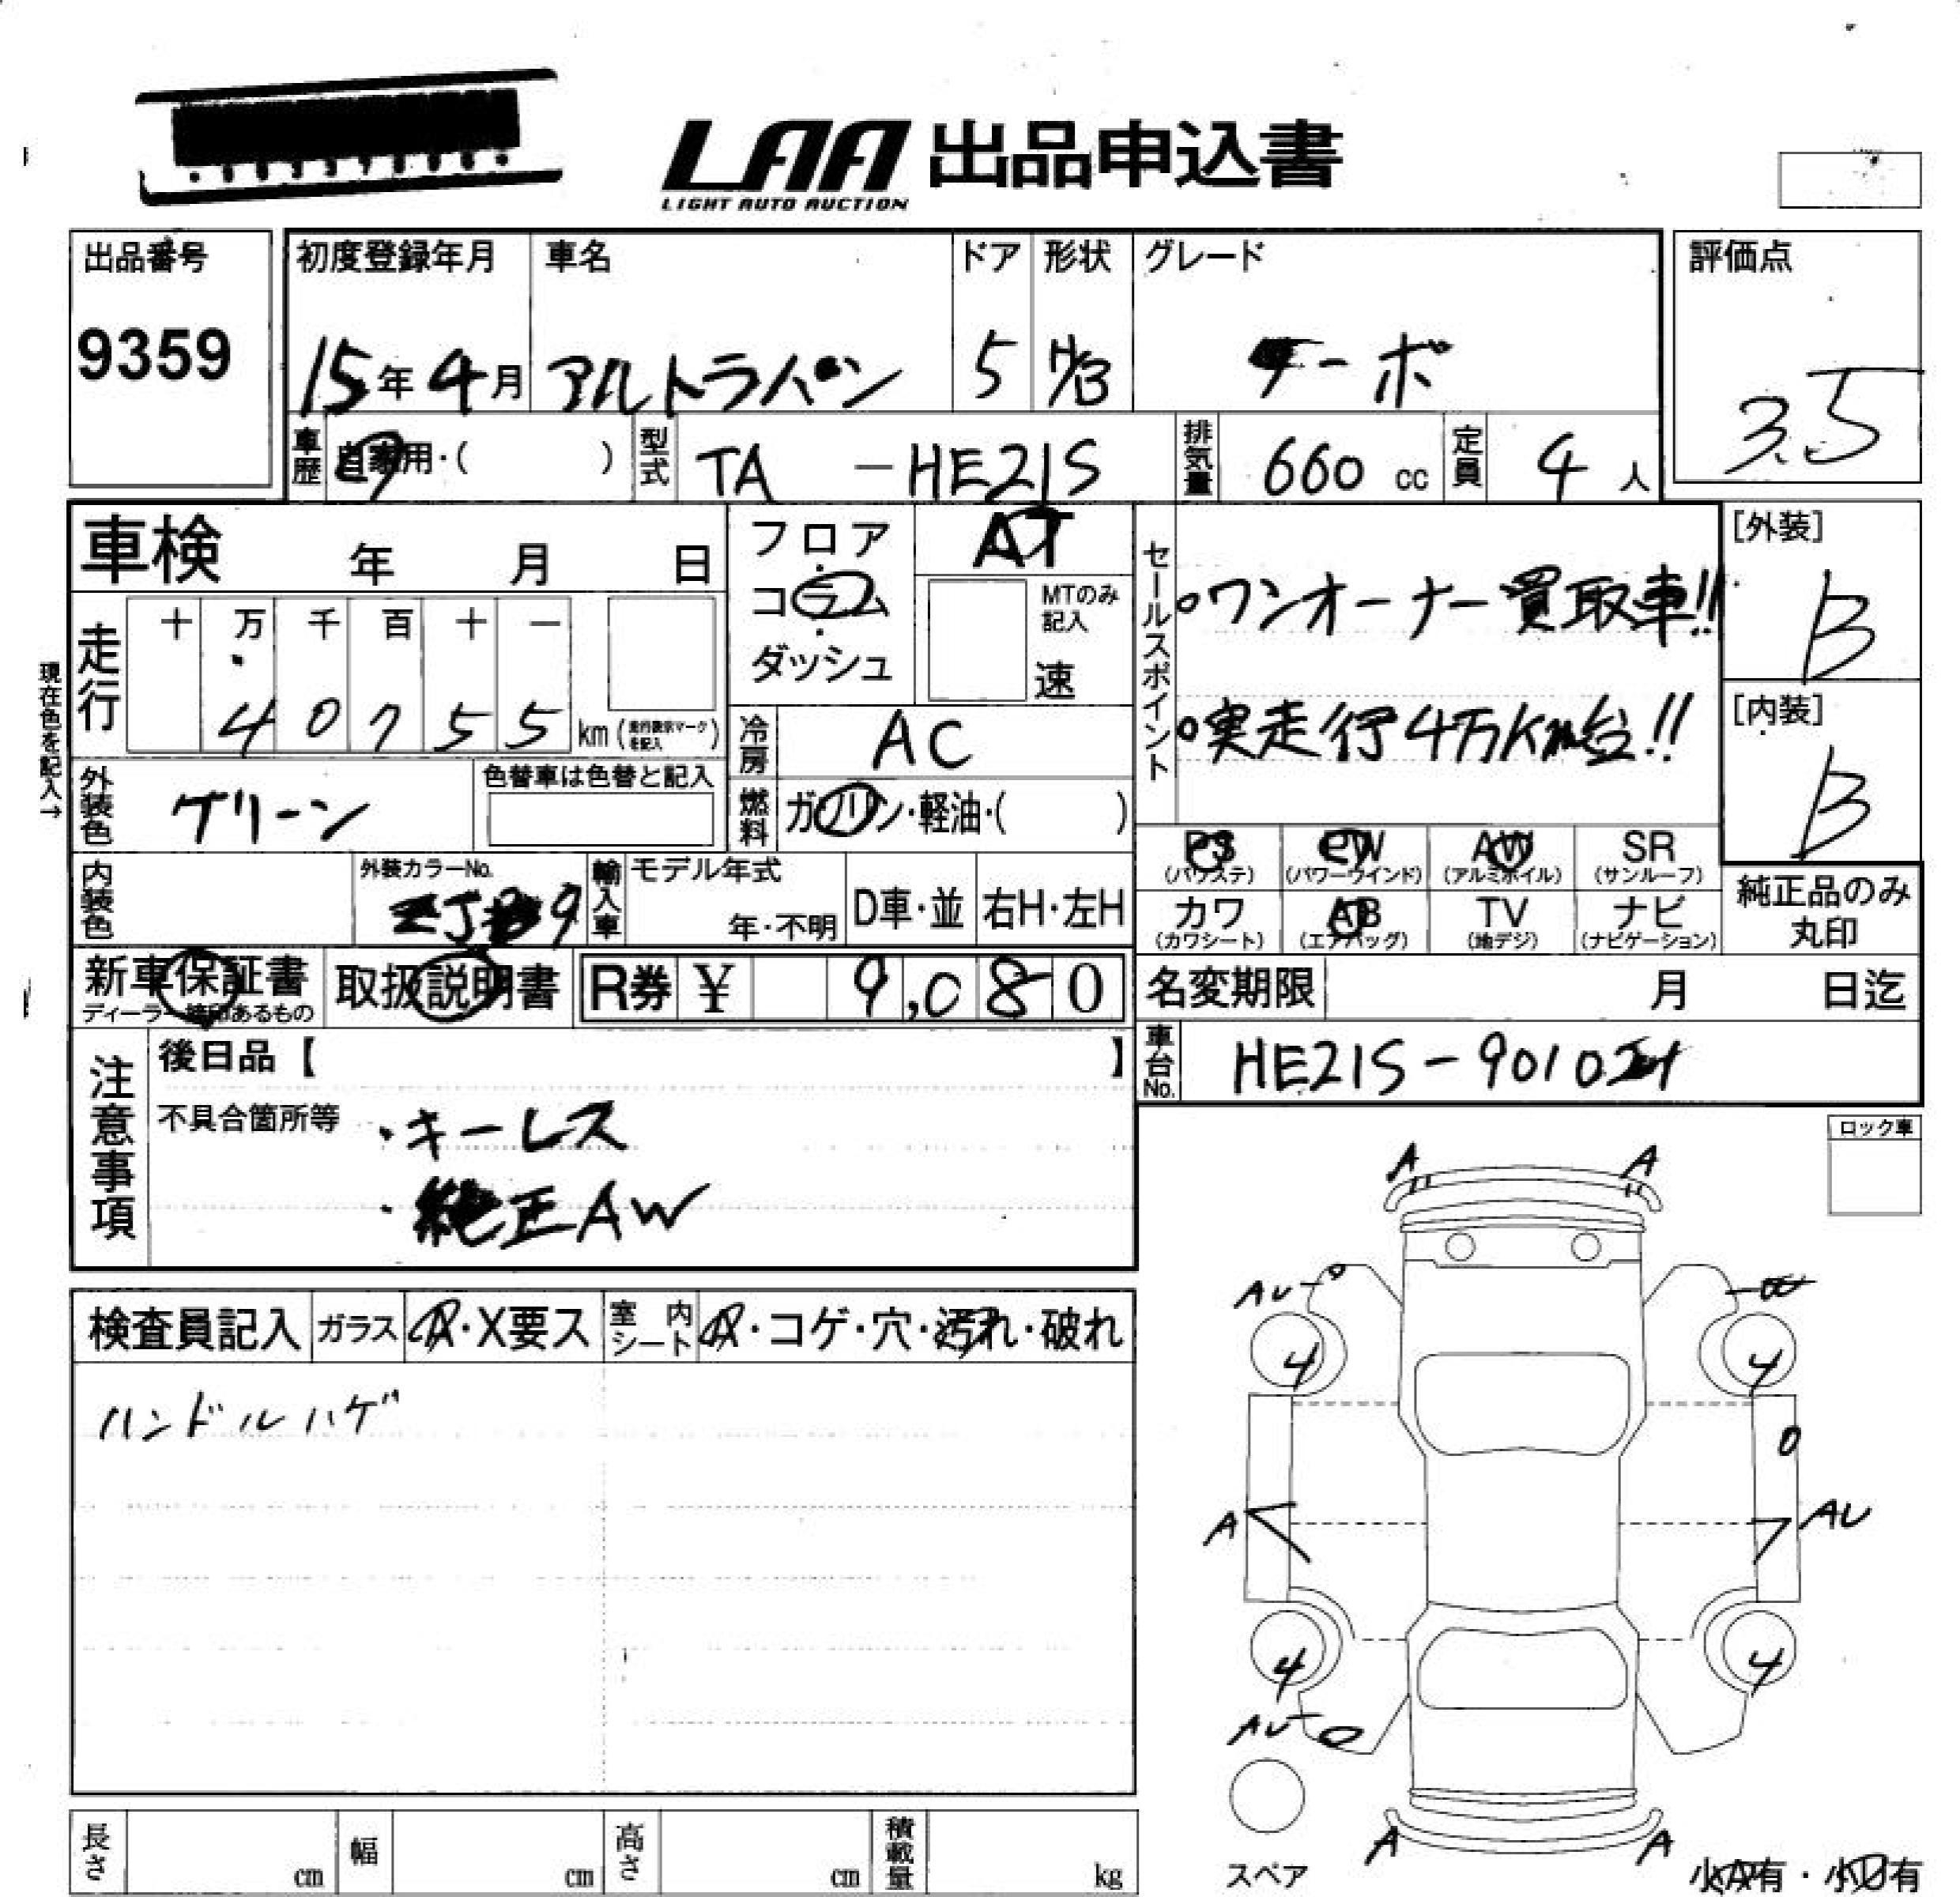 LAA 出品申込書
LIGHT AUTO AUCTION
出品番号
9359
初度登録年月 車名 ドア 形状 グレード
15年4月 アルトラパン 5 H/B ターボ
評価点
3.5
車歴 自家用・( ) 型式 TA -HE21S 排気量 660 cc 定員 4 人
車検 年 月 日
フロア
コラム
ダッシュ
AT
MTのみ記入
速
セールスポイント
○ワンオーナー買取車!!
○実走行4万Km台!!
[外装]
B
[内装]
B
現在色を記入→
走行 十 万 千 百 十 一
4 0 7 5 5 km (走行表示マークを記入)
冷房 AC
燃料 ガソリン・軽油・( )
外装色 グリーン
色替車は色替と記入
内装色
外装カラーNo.
輸入車 モデル年式
年・不明 D車・並 右H・左H
PS PW AW SR
(パワステ) (パワーウインド) (アルミホイル) (サンルーフ)
カワ AB TV ナビ
(カワシート) (エアバッグ) (地デジ) (ナビゲーション)
純正品のみ
丸印
新車保証書 取扱説明書 R券 ¥ 9,080
ディーラー捺印あるもの
名変期限 月 日迄
車台No. HE21S-9010
注意事項
後日品【 】
不具合箇所等
・キーレス
・純正AW
ロック車
検査員記入 ガラス A・X要ス 室内シート A・コゲ・穴・汚れ・破れ
ハンドルハゲ
A A
AU
4 4
A AU
4 4
AU
スペア
A A
小A有・小U有
長さ cm 幅 cm 高さ cm 積載量 kg